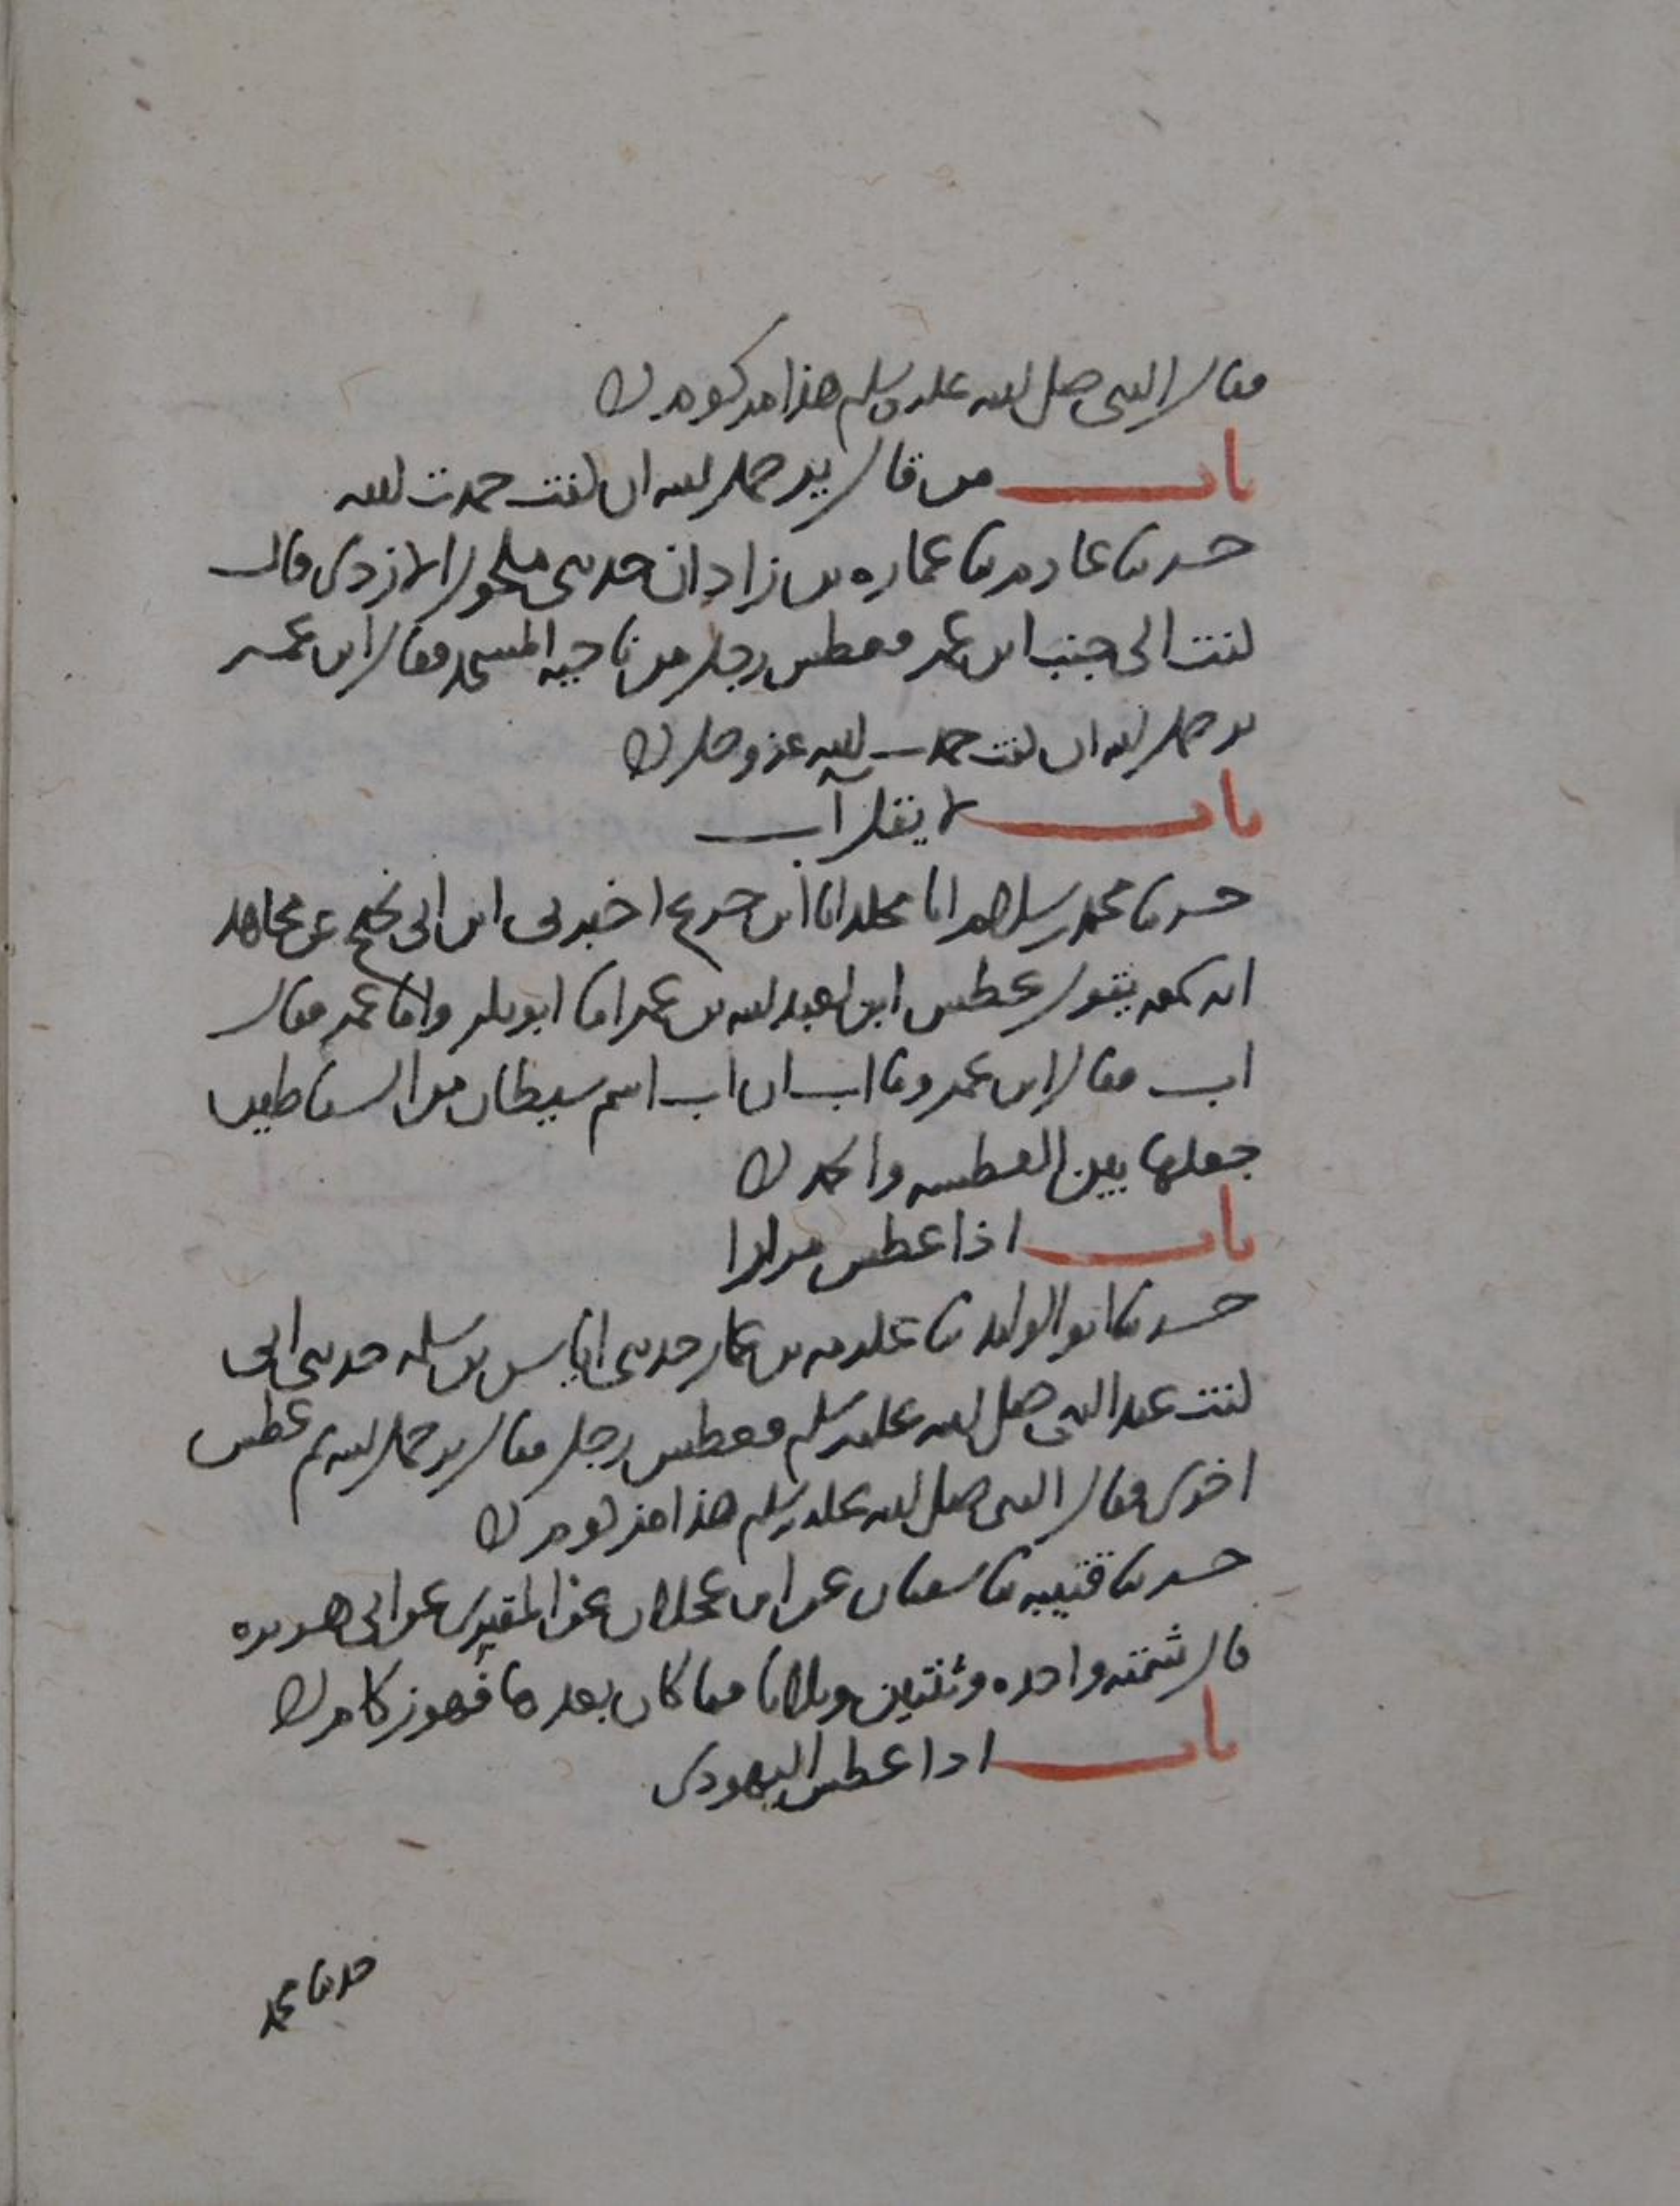 فقال النبي صلى الله عليه وسلم هذا مزكوم
باب من قال يرحمك الله ان كنت حمدت الله
حدثنا عارم ثنا عماره بن زاذان حدثني مكحول الازدي قال
كنت الى جنب ابن عمر فعطس رجل من ناحيه المسجد فقال ابن عمر
يرحمك الله ان كنت حمدت الله عز وجل
باب لا يقل آب
حدثنا محمد بن سلام انا مخلد انا ابن جريج اخبرني ابن ابي نجيح عن مجاهد
انه سمعه يقول عطس ابن لعبد الله بن عمر اما ابو بكر واما عمر فقال
اب فقال ابن عمر وما اب ان اب اسم شيطان من الشياطين
جعلها بين العطسه والحمد
باب اذا عطس مرارا
حدثنا ابو الوليد ثنا عكرمه بن عمار حدثني اياس بن سلمه حدثني ابي
كنت عند النبي صلى الله عليه وسلم فعطس رجل فقال يرحمك الله ثم عطس
اخرى فقال النبي صلى الله عليه وسلم هذا مزكوم
حدثنا قتيبه ثنا سفيان عن ابن عجلان عن المقبري عن ابي هريره
قال شمته واحده وثنتين وثلاثا فما كان بعد هذا فهو زكام
باب اذا عطس اليهودي
حدثنا محمد